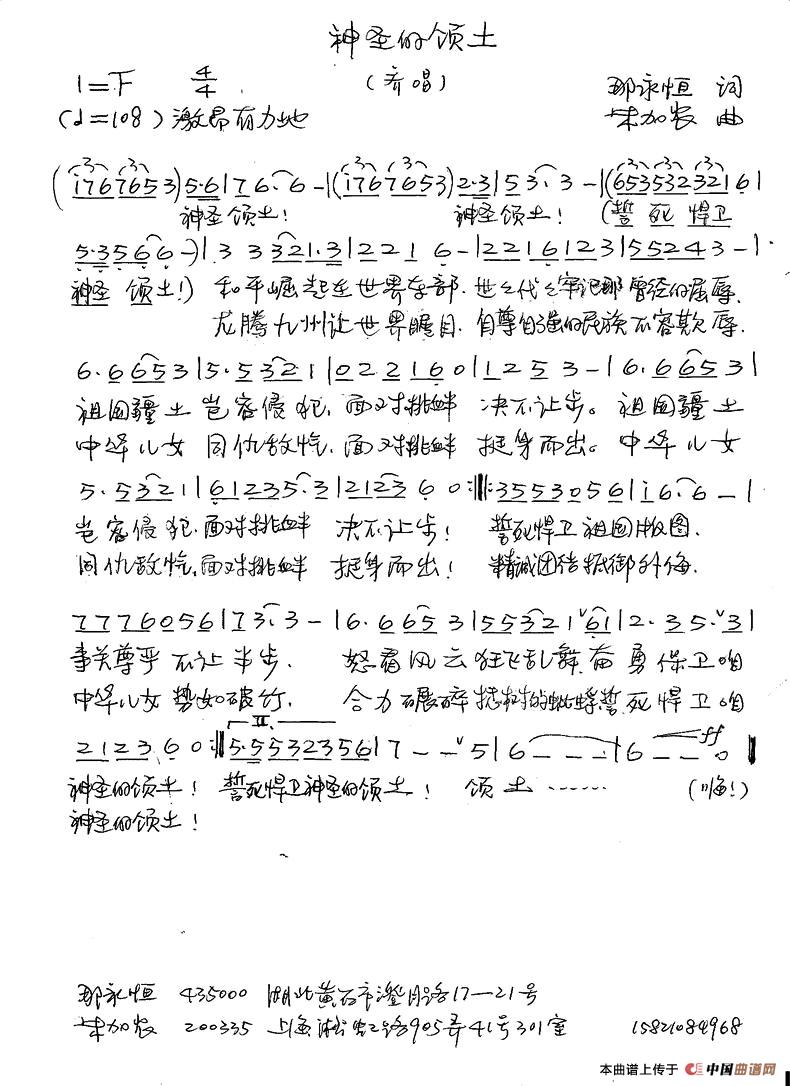 神圣的领土
1=F 4/4 (齐唱) 那永恒 词
(♩=108) 激昂有力地 朱加农 曲
(i767653) 5·6|76·6-|(i767653) 2·3|53·3-|(653532321 61|
神圣领土! 神圣领土! (誓死捍卫
5·3566-)|3 3321·3|221 6-|2216123|55243-|
神圣领土!) 和平崛起在世界东部.世世代代牢记那曾经的屈辱.
龙腾九州让世界瞩目.自尊自强的民族不容欺辱.
6·6653|5·5321|022160|1253-|6·6653|
祖国疆土岂容侵犯.面对挑衅 决不让步。祖国疆土
中华儿女同仇敌忾.面对挑衅 挺身而出。中华儿女
5·5321|61235·3|2123 60:‖:3553056|i6·6-|
岂容侵犯.面对挑衅 决不让步! 誓死捍卫祖国版图.
同仇敌忾.面对挑衅 挺身而出! 精诚团结抵御外侮.
7776056|73·3-|6·6653|55321ᵛ61|2·35·ᵛ3|
事关尊严不让半步. 怒看风云狂飞乱舞奋勇保卫咱
中华儿女势如破竹. 合力碾碎 誓死捍卫咱
2123 60:‖5·553235 6|7--ᵛ5|6---|6--0‖
II. ff
神圣的领土! 誓死捍卫神圣的领土! 领土…… (嗨!)
神圣的领土!
那永恒 435000 湖北黄石市澄月路17—21号
朱加农 200335 上海淞虹路905弄41号301室 15821084968
本曲谱上传于 中国曲谱网